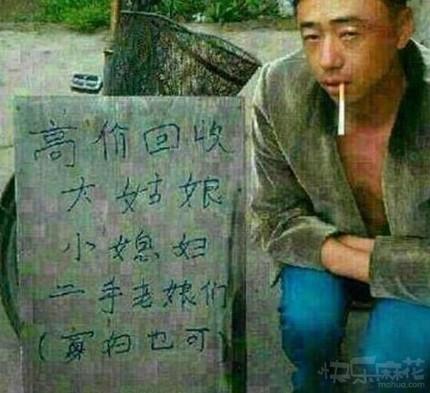 高价回收
大姑娘
小媳妇
二手老娘们
(寡妇也可)
快乐麻花
mahua.com